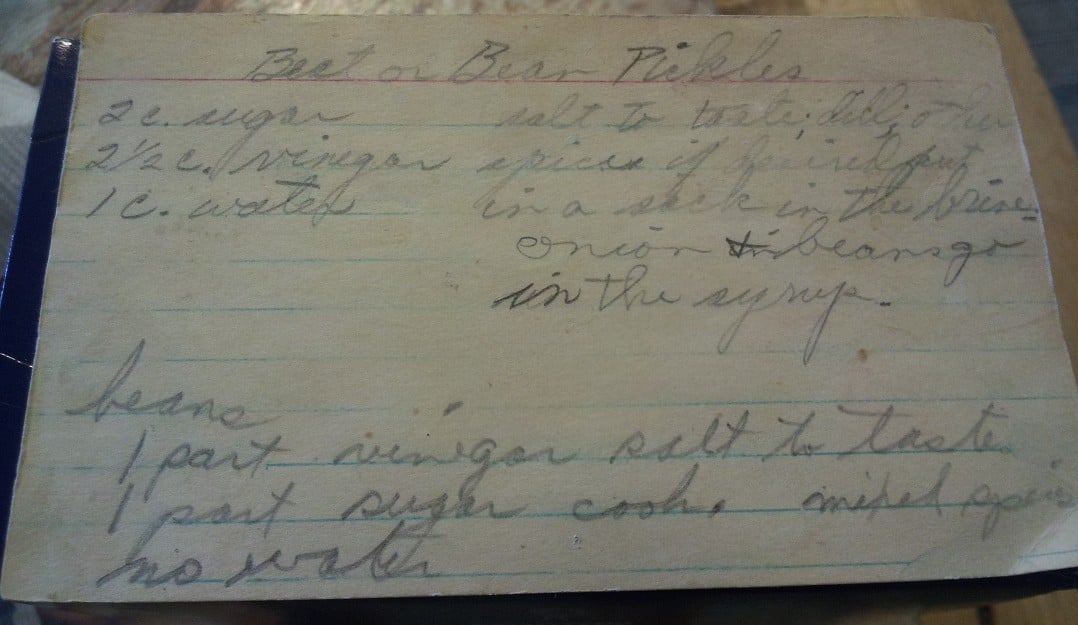 Beet or Bean Pickles
2 c. sugar salt to taste; dill; other
2½ c. vinegar spices if desired put
1 c. water in a sack in the brine-
onion in beans go
in the syrup.
beans
1 part vinegar salt to taste
1 part sugar cook. mixed spices
no water